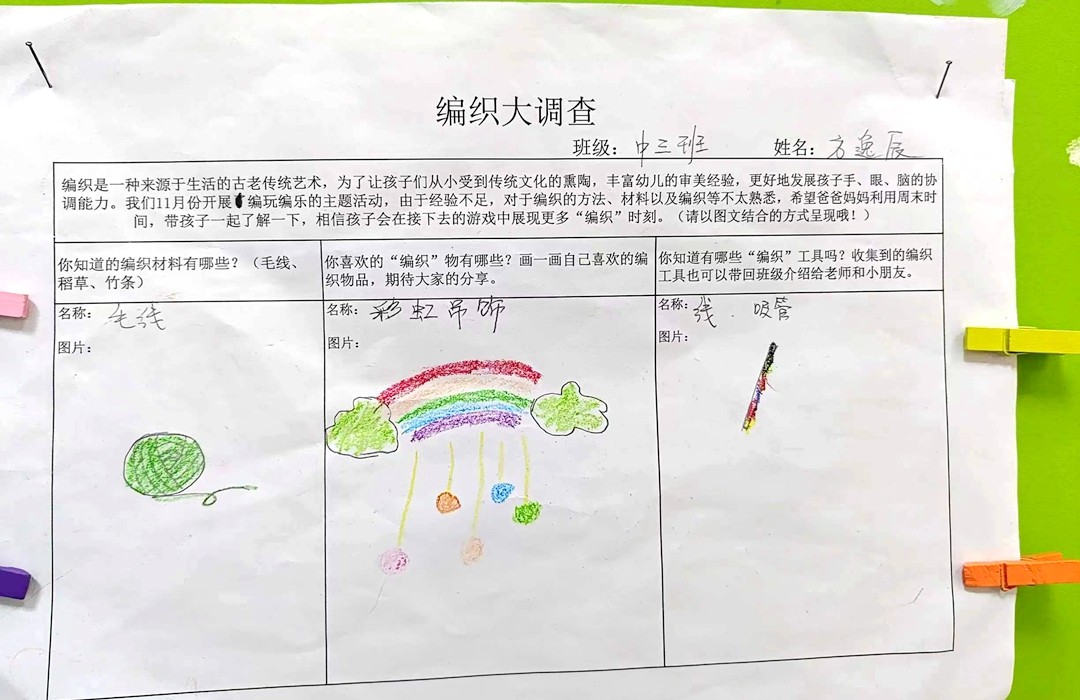 编织大调查
班级：中三班 姓名：方逸辰
编织是一种来源于生活的古老传统艺术，为了让孩子们从小受到传统文化的熏陶，丰富幼儿的审美经验，更好地发展孩子手、眼、脑的协
调能力。我们11月份开展编玩编乐的主题活动，由于经验不足，对于编织的方法、材料以及编织等不太熟悉，希望爸爸妈妈利用周末时
间，带孩子一起了解一下，相信孩子会在接下去的游戏中展现更多“编织”时刻。（请以图文结合的方式呈现哦！）
你知道的编织材料有哪些？（毛线、
稻草、竹条）
你喜欢的“编织”物有哪些？画一画自己喜欢的编
织物品，期待大家的分享。
你知道有哪些“编织”工具吗？收集到的编织
工具也可以带回班级介绍给老师和小朋友。
名称：毛线
图片：
名称：彩虹吊饰
图片：
名称：线．吸管
图片：